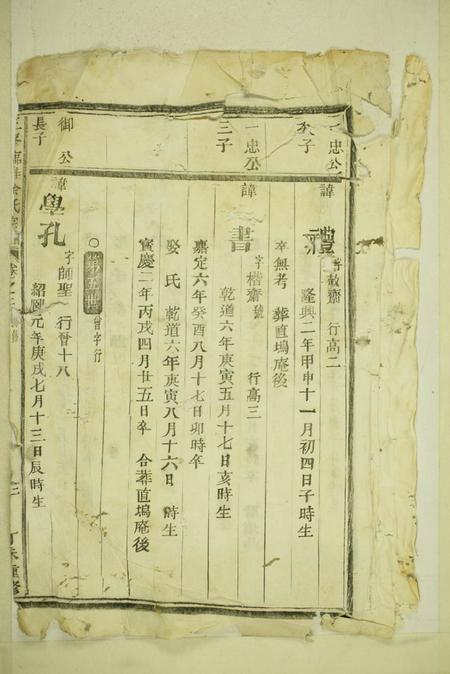 一忠公
次子
諱
禮
字敬齋 行高二
隆興二年甲申十一月初四日子時生
卒無考 葬直塢庵後
一忠公
三子
諱
書
字楷齋號 行高三
乾道六年庚寅五月十七日亥時生
嘉定六年癸酉八月十七日卯時卒
娶 氏 乾道六年庚寅八月十六日 時生
寶慶二年丙戌四月廿五日卒 合葬直塢庵後
○
第五世
曾字行
御公
長子
諱
學孔
字師聖 行曾十八
紹熙元年庚戌七月十三日辰時生
余氏
卷之
丁未重修